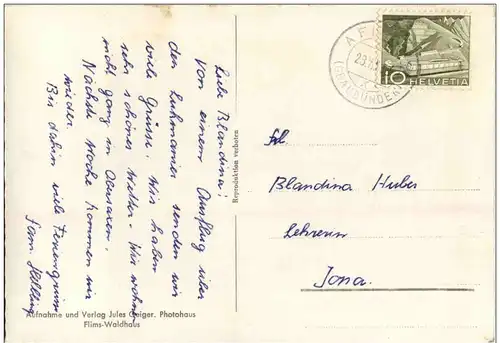 Liebe Blandina!
Von einem Ausflug über
den Lukmanier senden wir
viele Grüsse. Wir haben
sehr schönes Wetter. Wir wohnen
nicht ganz in Obersaxen.
Nächste Woche kommen wir
wieder.
Bis dahin viele
Fam.
Reproduktion verboten
Aufnahme und Verlag Jules Geiger, Photohaus
Flims-Waldhaus
(GRAUBÜNDEN)
10 HELVETIA
Frl.
Blandina Huber
Lehrerin
Jona.